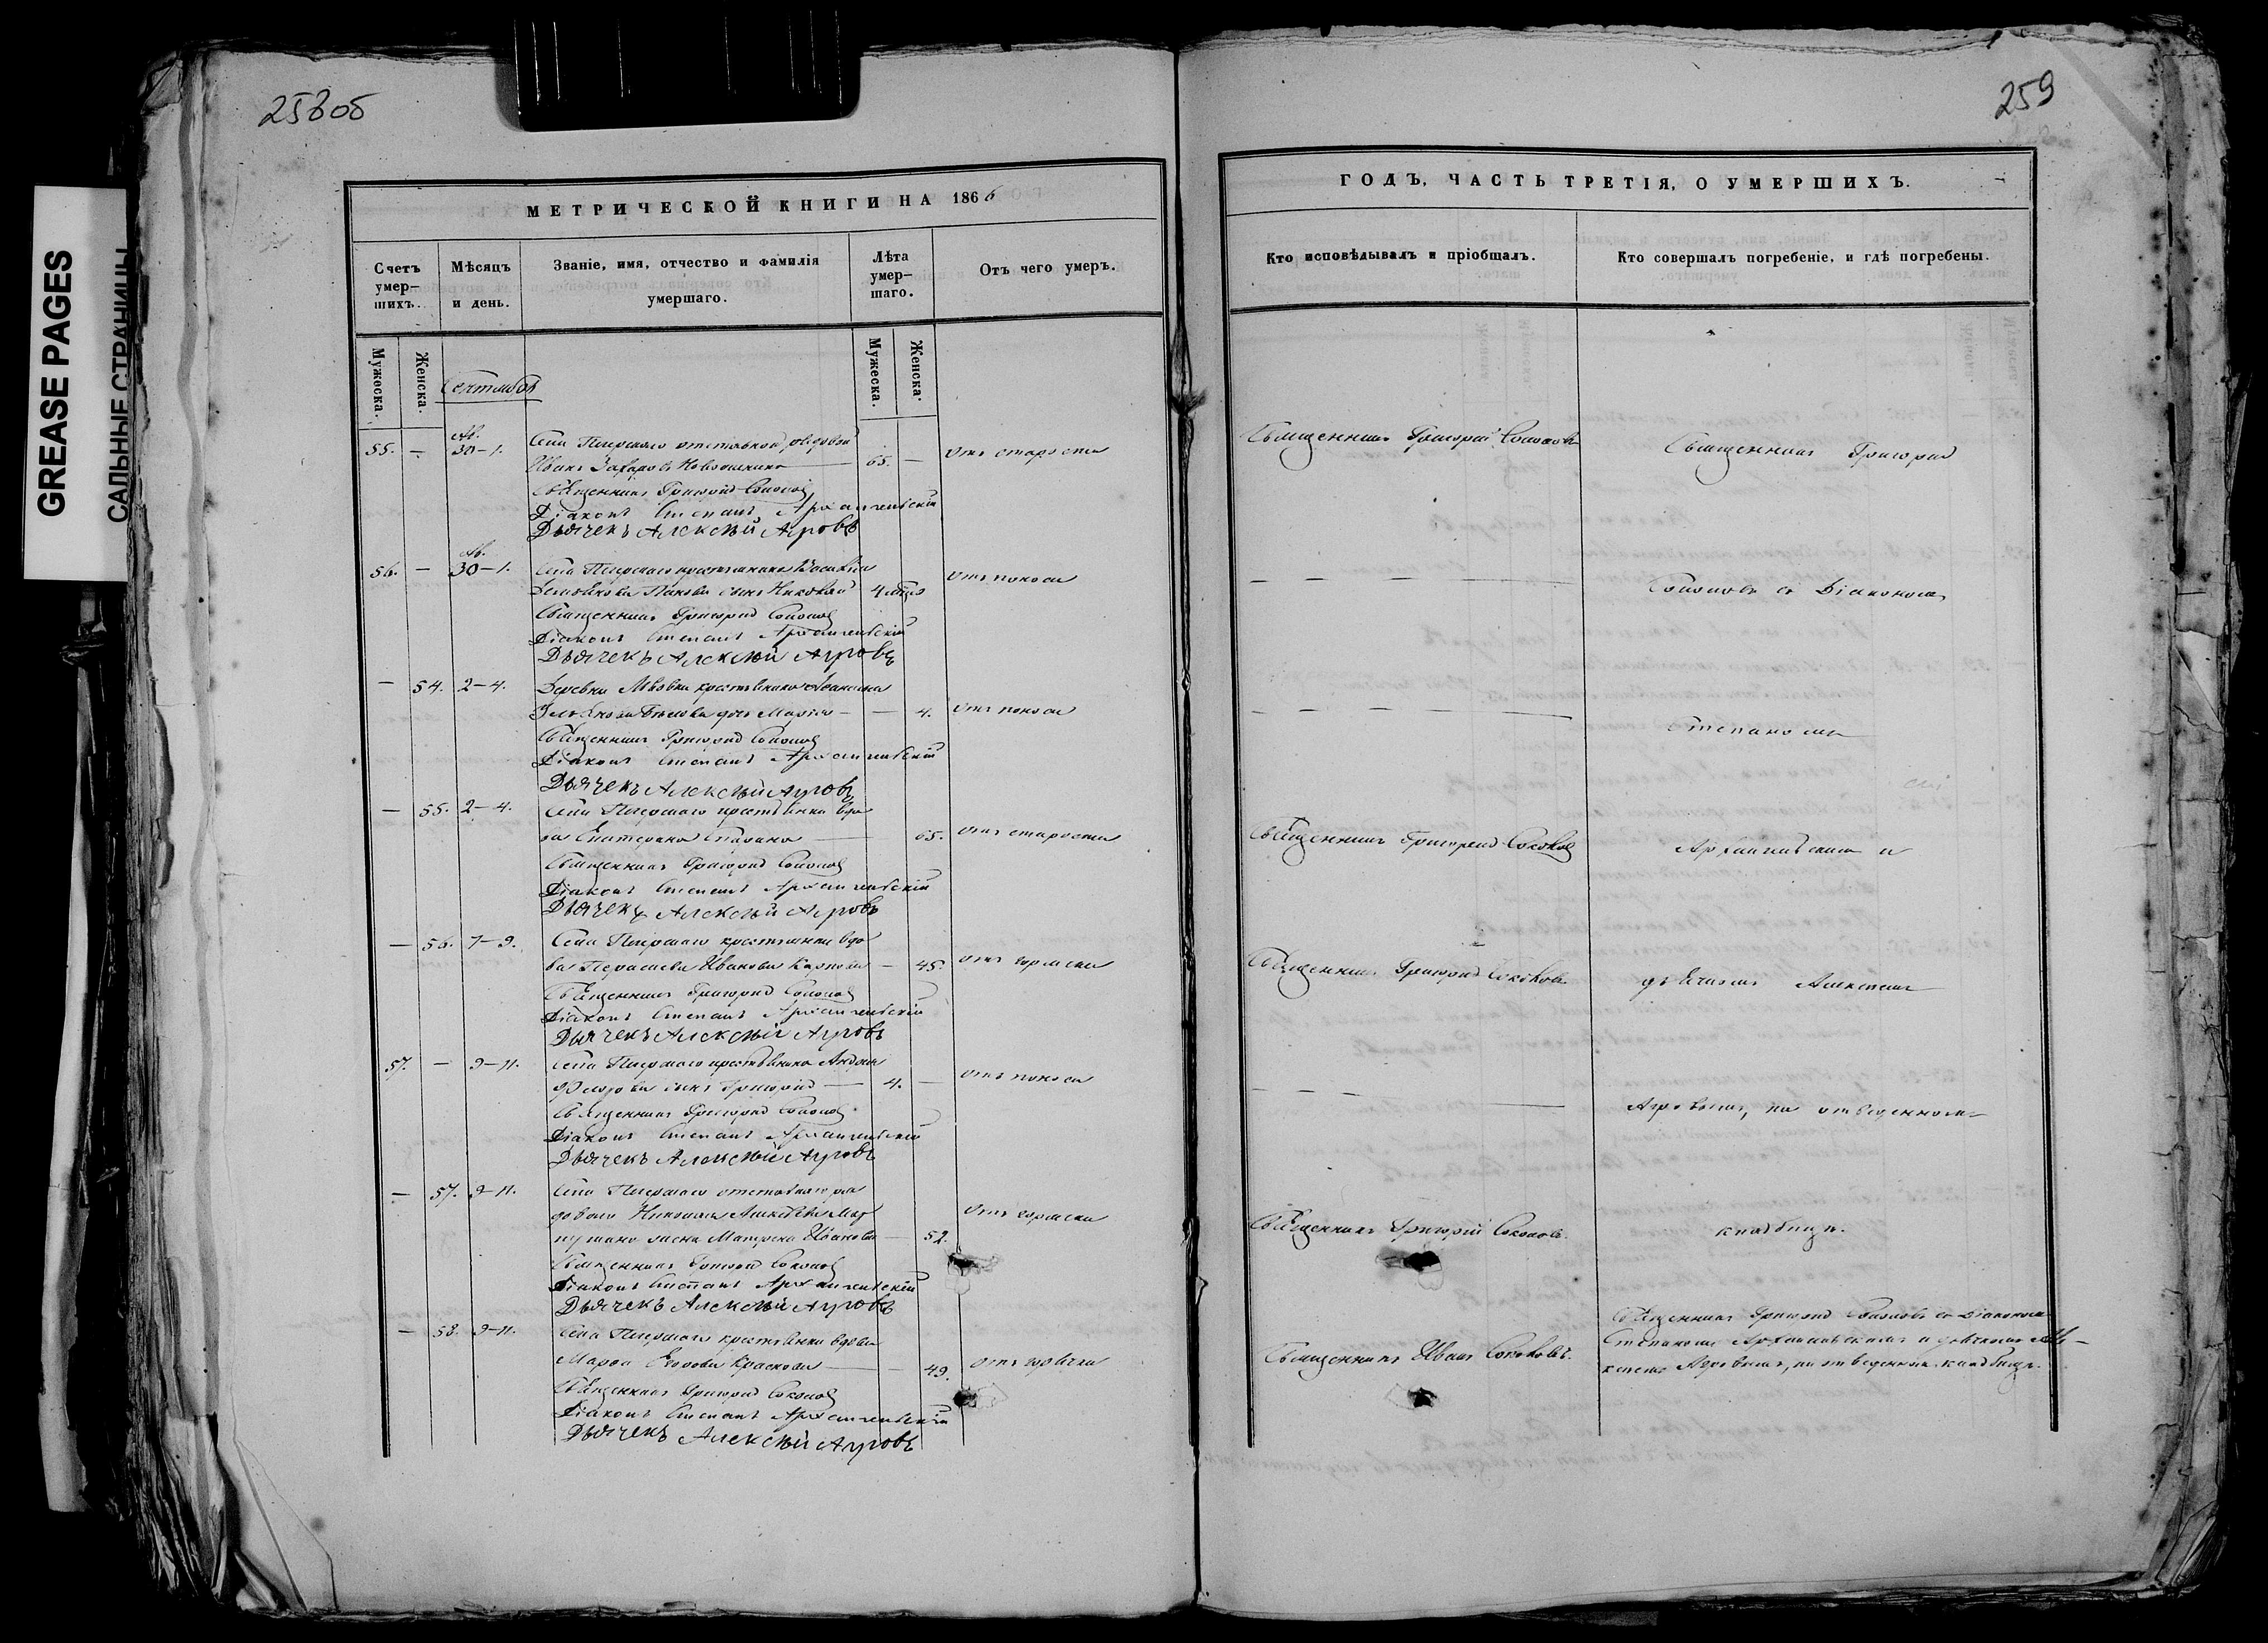 GREASE PAGES
САЛЬНЫЕ СТРАНИЦЫ
258об
МЕТРИЧЕСКОЙ КНИГИ НА 1866
Счетъ умер-шихъ.
Мѣсяцъ и день.
Званіе, имя, отчество и фамилія умершаго.
Лѣта умер-шаго.
Отъ чего умеръ.
Мужеска.
Женска.
Мужеска.
Женска.
Сентябрь
55. — Ав. 30-1. Села отставной рядовой
Иванъ Захаровъ — 65. — отъ старости
Священникъ Григорій Соколовъ
Діаконъ Степанъ Архангельскій
Дьячекъ Алексѣй Агровъ
56. — Ав. 30-1. Села крестьянина Василія
сынъ Николай 4 отъ поноса
Священникъ Григорій Соколовъ
Діаконъ Степанъ Архангельскій
Дьячекъ Алексѣй Агровъ
— 54. 2-4. Деревни крестьянина
дочь Марія — — 4. отъ поноса
Священникъ Григорій Соколовъ
Діаконъ Степанъ Архангельскій
Дьячекъ Алексѣй Агровъ
— 55. 2-4. Села крестьянка вдо
ва Екатерина — 65. отъ старости
Священникъ Григорій Соколовъ
Діаконъ Степанъ Архангельскій
Дьячекъ Алексѣй Агровъ
— 56. 7-9. Села крестьянка вдо
ва Иванова Карпова — 45. отъ горячки
Священникъ Григорій Соколовъ
Діаконъ Степанъ Архангельскій
Дьячекъ Алексѣй Агровъ
57. — 9-11. Села крестьянина Андрея
Федорова сынъ Григорій — 4. — отъ поноса
Священникъ Григорій Соколовъ
Діаконъ Степанъ Архангельскій
Дьячекъ Алексѣй Агровъ
— 57. 9-11. Села отставного ря
доваго Николая
жена Матрена Иванова — 52. отъ горячки
Священникъ Григорій Соколовъ
Діаконъ Степанъ Архангельскій
Дьячекъ Алексѣй Агровъ
— 58. 9-11. Села крестьянка вдова
Марфа Егорова — 49. отъ горячки
Священникъ Григорій Соколовъ
Діаконъ Степанъ Архангельскій
Дьячекъ Алексѣй Агровъ
259
ГОДЪ, ЧАСТЬ ТРЕТІЯ, О УМЕРШИХЪ.
Кто исповѣдывалъ и пріобщалъ.
Кто совершалъ погребеніе, и гдѣ погребены.
Священникъ Григорій Соколовъ Священникъ Григорій
— — — — Соколовъ съ Діакономъ
— — — — Степаномъ
Священникъ Григорій Соколовъ Архангельскимъ и
Священникъ Григорій Соколовъ дьячкомъ Алексѣемъ
— — — Агровымъ, на отведенномъ
Священникъ Григорій Соколовъ. кладбищѣ.
Священникъ Иванъ Соколовъ. Священникъ Григорій Соколовъ съ Діакономъ
Степаномъ Архангельскимъ и дьячкомъ Але-
ксѣемъ Агровымъ, на отведенномъ кладбищѣ.